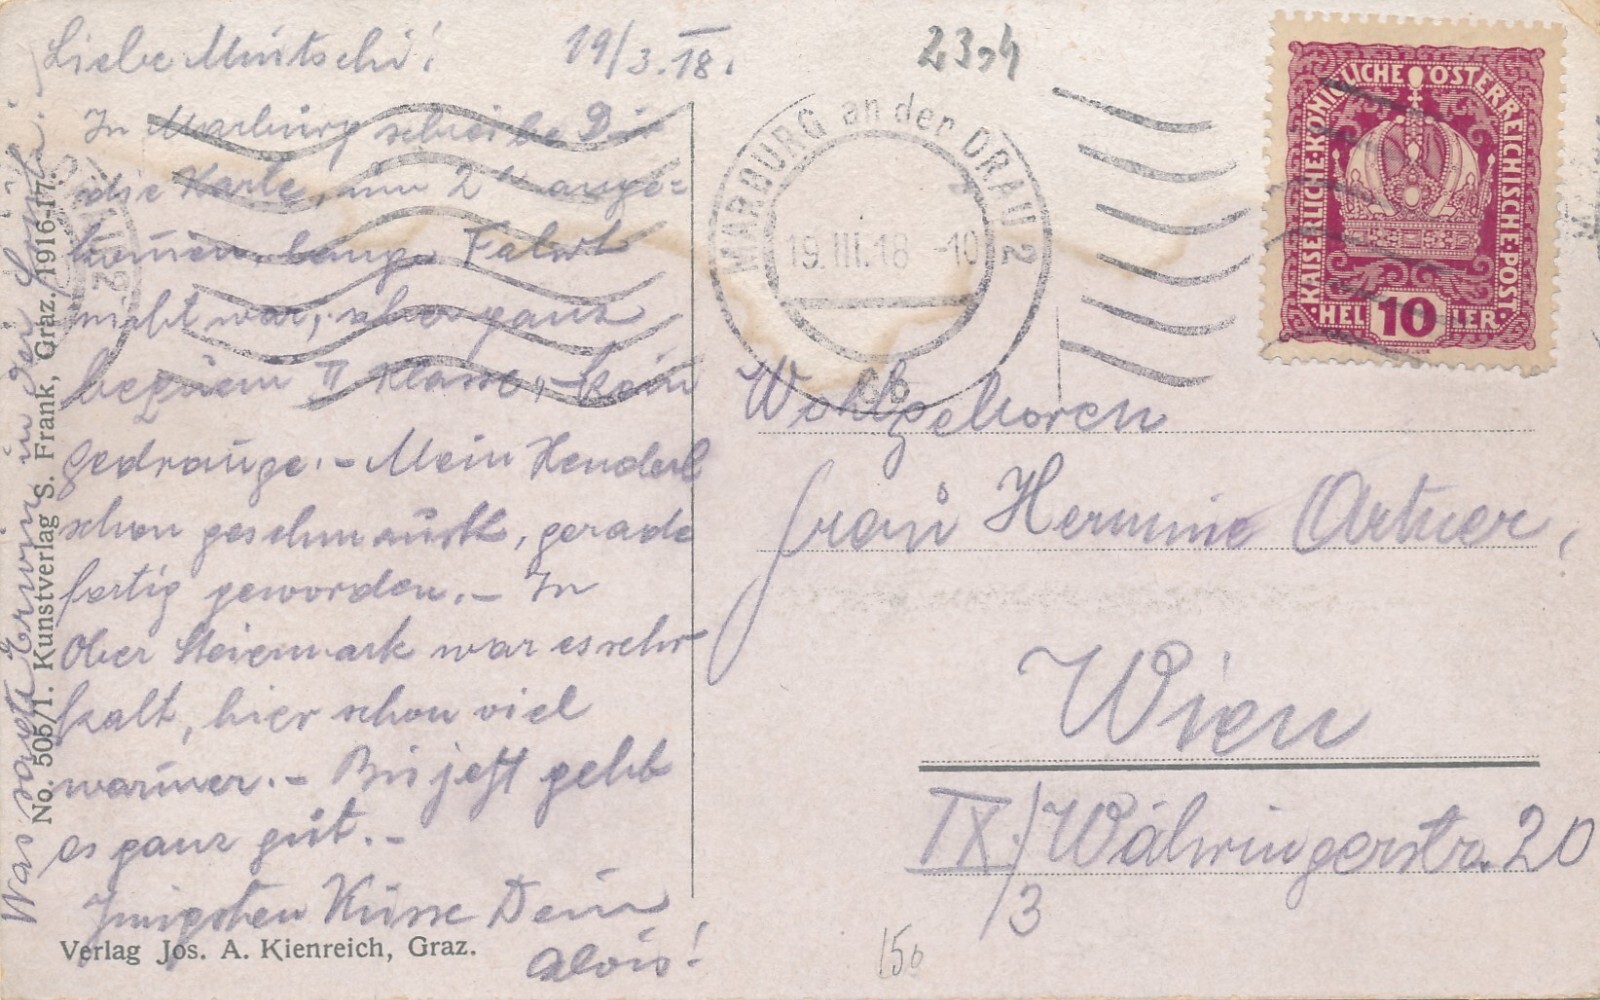 Liebe Muitschi! 19/3.18.
2304
In Marburg schreibe Dir
die Karte, um 2 h ange=
kom̅en, lange Fahrt
nicht war, aber ganz
bequem II Klasse, kein
gedränge. – Mein Henderl
schon geschmaust, gerade
fertig geworden. – In
Ober Steiermark war es sehr
kalt, hier schon viel
wärmer. – Bis jetzt geht
es ganz gut. –
Innigsten Küsse Dein
Alois!
Was sagte Erwin in der
No. 505/1. Kunstverlag S. Frank, Graz. 1916-17.
Verlag Jos. A. Kienreich, Graz.
MARBURG an der DRAU 2
19.III.18 -10
6b
KAISERLICHE·KÖNIGLICHE ÖSTERREICHISCHE·POST
HELLER
10
Wohlgeboren
Frau Hermine Artner,
Wien
IX./Währingerstr. 20
/3
150